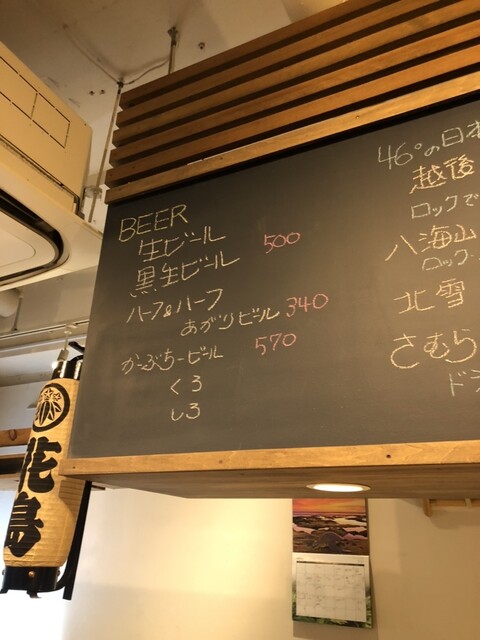 BEER
生ビール
黒生ビール 500
ハーフ&ハーフ
あがりビール 340
かーぶちービール 570
くろ
しろ
46°の日本
越後
ロックで
八海山
ロック
北雪
さむら
ド
花島